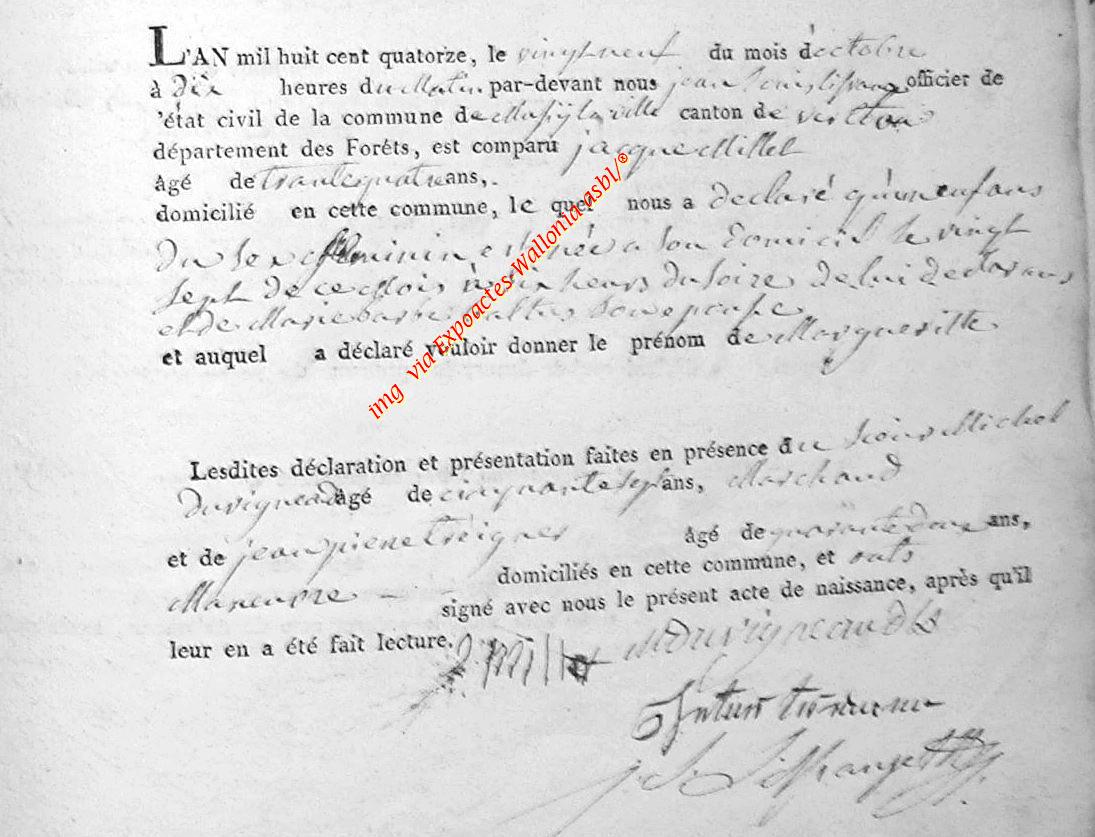 L'AN mil huit cent quatorze, le vingt neuf du mois d'octobre
à dix heures du Matin par-devant nous jean officier de
'état civil de la commune de Musÿ la ville canton de virton
département des Foréts, est comparu jacque Millet
âgé de trante quatre ans,
domicilié en cette commune, le quel nous a declaré qu'un enfans
du sexe feminin est née a son domicil le vingt
sept de ce Mois à dix heurs du soire de lui declarans
et de Marie barbe son epouse
et auquel a déclaré vouloir donner le prénom de Margueritte
Lesdites déclaration et présentation faites en présence du sieur Michel
Duvigneaud âgé de cinquante sept ans, Marchand
et de jean piere âgé de quarante deux ans,
Maneuvre domiciliés en cette commune, et onts
signé avec nous le présent acte de naissance, après qu'il
leur en a été fait lecture. J. Millet M Duvigneaud
img via Expoactes Wallonia asbl/®